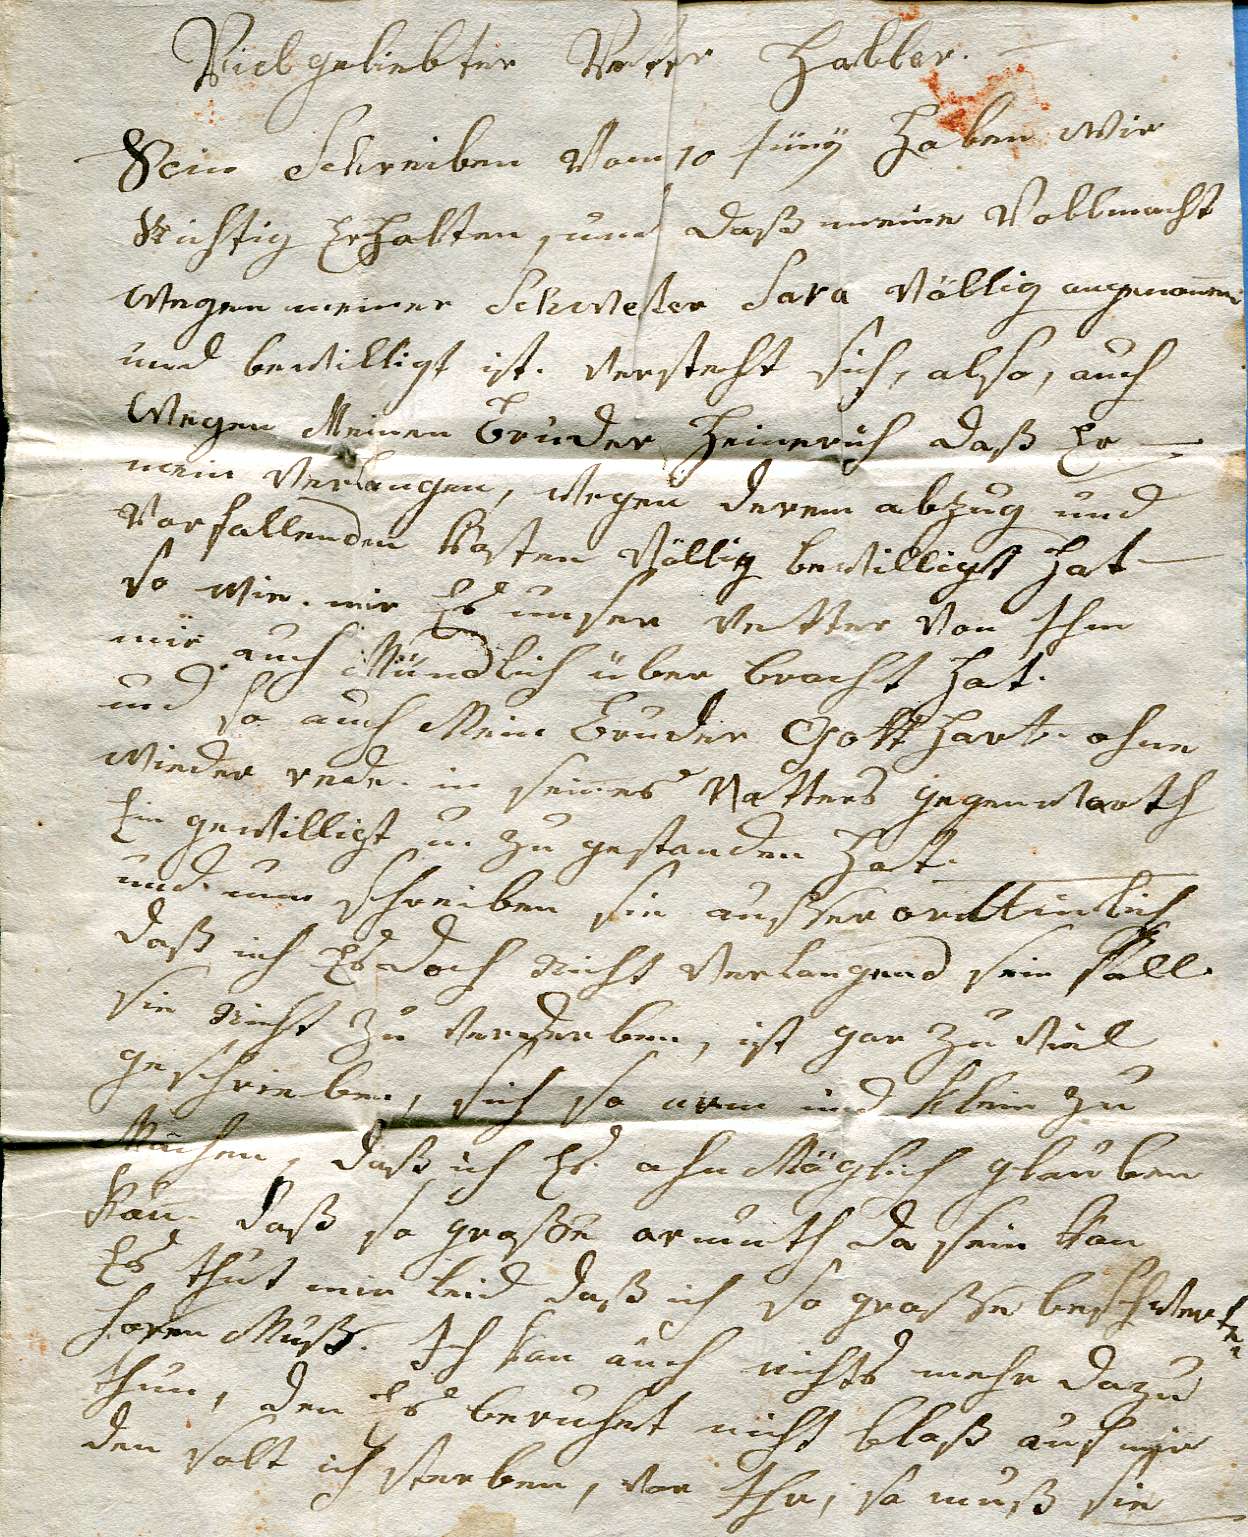 Vielgeliebter Vetter Haller.
Sein Schreiben Vom 10 Juny Haben Wir
Richtig Erhalten, und daß meine Vollmacht
Wegen meiner Schwester Sara Völlig angenomen
und bewilligt ist. Versteht sich, also, auch
Wegen Meinen Bruder Heinerich daß Er
mein Verlangen, wegen derem abzug und
Vorfallenden Kosten Völlig bewilligt Hat
so wie mir Es unser Vetter Von Ihm
mir auch Mündlich über bracht Hat.
und so auch Mein Bruder Gotthart ohne
wieder rede in seines Vatters gegenwarth
Ein gewilligt u. zu gestanden Hat.
und nun schreiben sie ausserordtindlich
daß ich Es doch nicht Verlangend sein soll
sie nicht zu Verderben, ist gar zu Viel
geschrieben, sich so arm und klein zu
Machen, daß ich Es ohn Möglich glauben
Kan. daß so große armuth da sein kan
Es thut mir leid daß ich so grosse beschwerten
horen Muß. Ich kan auch nichts mehr dazu
thun, den Es beruhet nicht bloß auf mir
den solt ich sterben, vor Ihr, so muß sie